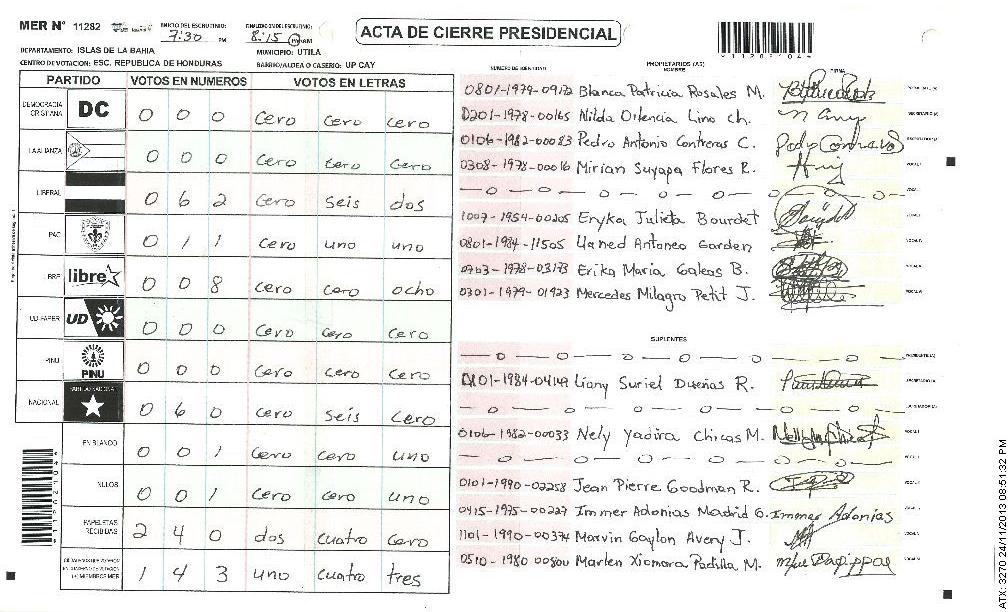 MER N° 11282
INICIO DEL ESCRUTINIO: 7:30 PM
FINALIZACION DEL ESCRUTINIO: 8:15 PM
ACTA DE CIERRE PRESIDENCIAL
DEPARTAMENTO: ISLAS DE LA BAHIA
MUNICIPIO: UTILA
CENTRO DE VOTACION: ESC. REPUBLICA DE HONDURAS
BARRIO/ALDEA O CASERIO: UP CAY
PARTIDO VOTOS EN NUMEROS VOTOS EN LETRAS
DEMOCRACIA CRISTIANA DC 0 0 0 cero cero cero
LA ALIANZA 0 0 0 cero cero cero
LIBERAL 0 6 2 cero seis dos
PAC 0 1 1 cero uno uno
LIBRE libre 0 0 8 cero cero ocho
UD-FAPER UD 0 0 0 cero cero cero
PINU PINU 0 0 0 cero cero cero
NACIONAL PARTIDO NACIONAL 0 6 0 cero seis cero
EN BLANCO 0 0 1 cero cero uno
NULOS 0 0 1 cero cero uno
PAPELETAS RECIBIDAS 2 4 0 dos cuatro cero
1 4 3 uno cuatro tres
NUMERO DE IDENTIDAD PROPIETARIOS (AS) NOMBRE FIRMA
0801-1979-0912 Blanca Patricia Rosales M.
0201-1978-00165 Nilda Ortencia Lino ch.
0106-1982-00083 Pedro Antonio Contreras C.
0308-1978-00016 Mirian Suyapa Flores R.
1007-1954-00205 Eryka Julieta Bourdet
0801-1984-11505 Antoneo Gorden
0703-1978-03173 Erika Maria Galeas B.
0301-1979-01923 Mercedes Milagro Petit J.
SUPLENTES
0101-1984-04149 Liany Suriel Dueñas R.
0106-1982-00033 Nely Yadira Chicas M.
0101-1990-02258 Jean Pierre Goodman R.
0415-1975-00227 Immer Adonias Madrid G. Immer Adonias
1101-1990-00374 Marvin Gaylon Avery J.
0510-1980-00800 Marlen Xiomara Padilla M.
ATX: 3270 24/11/2013 08:51:32 PM